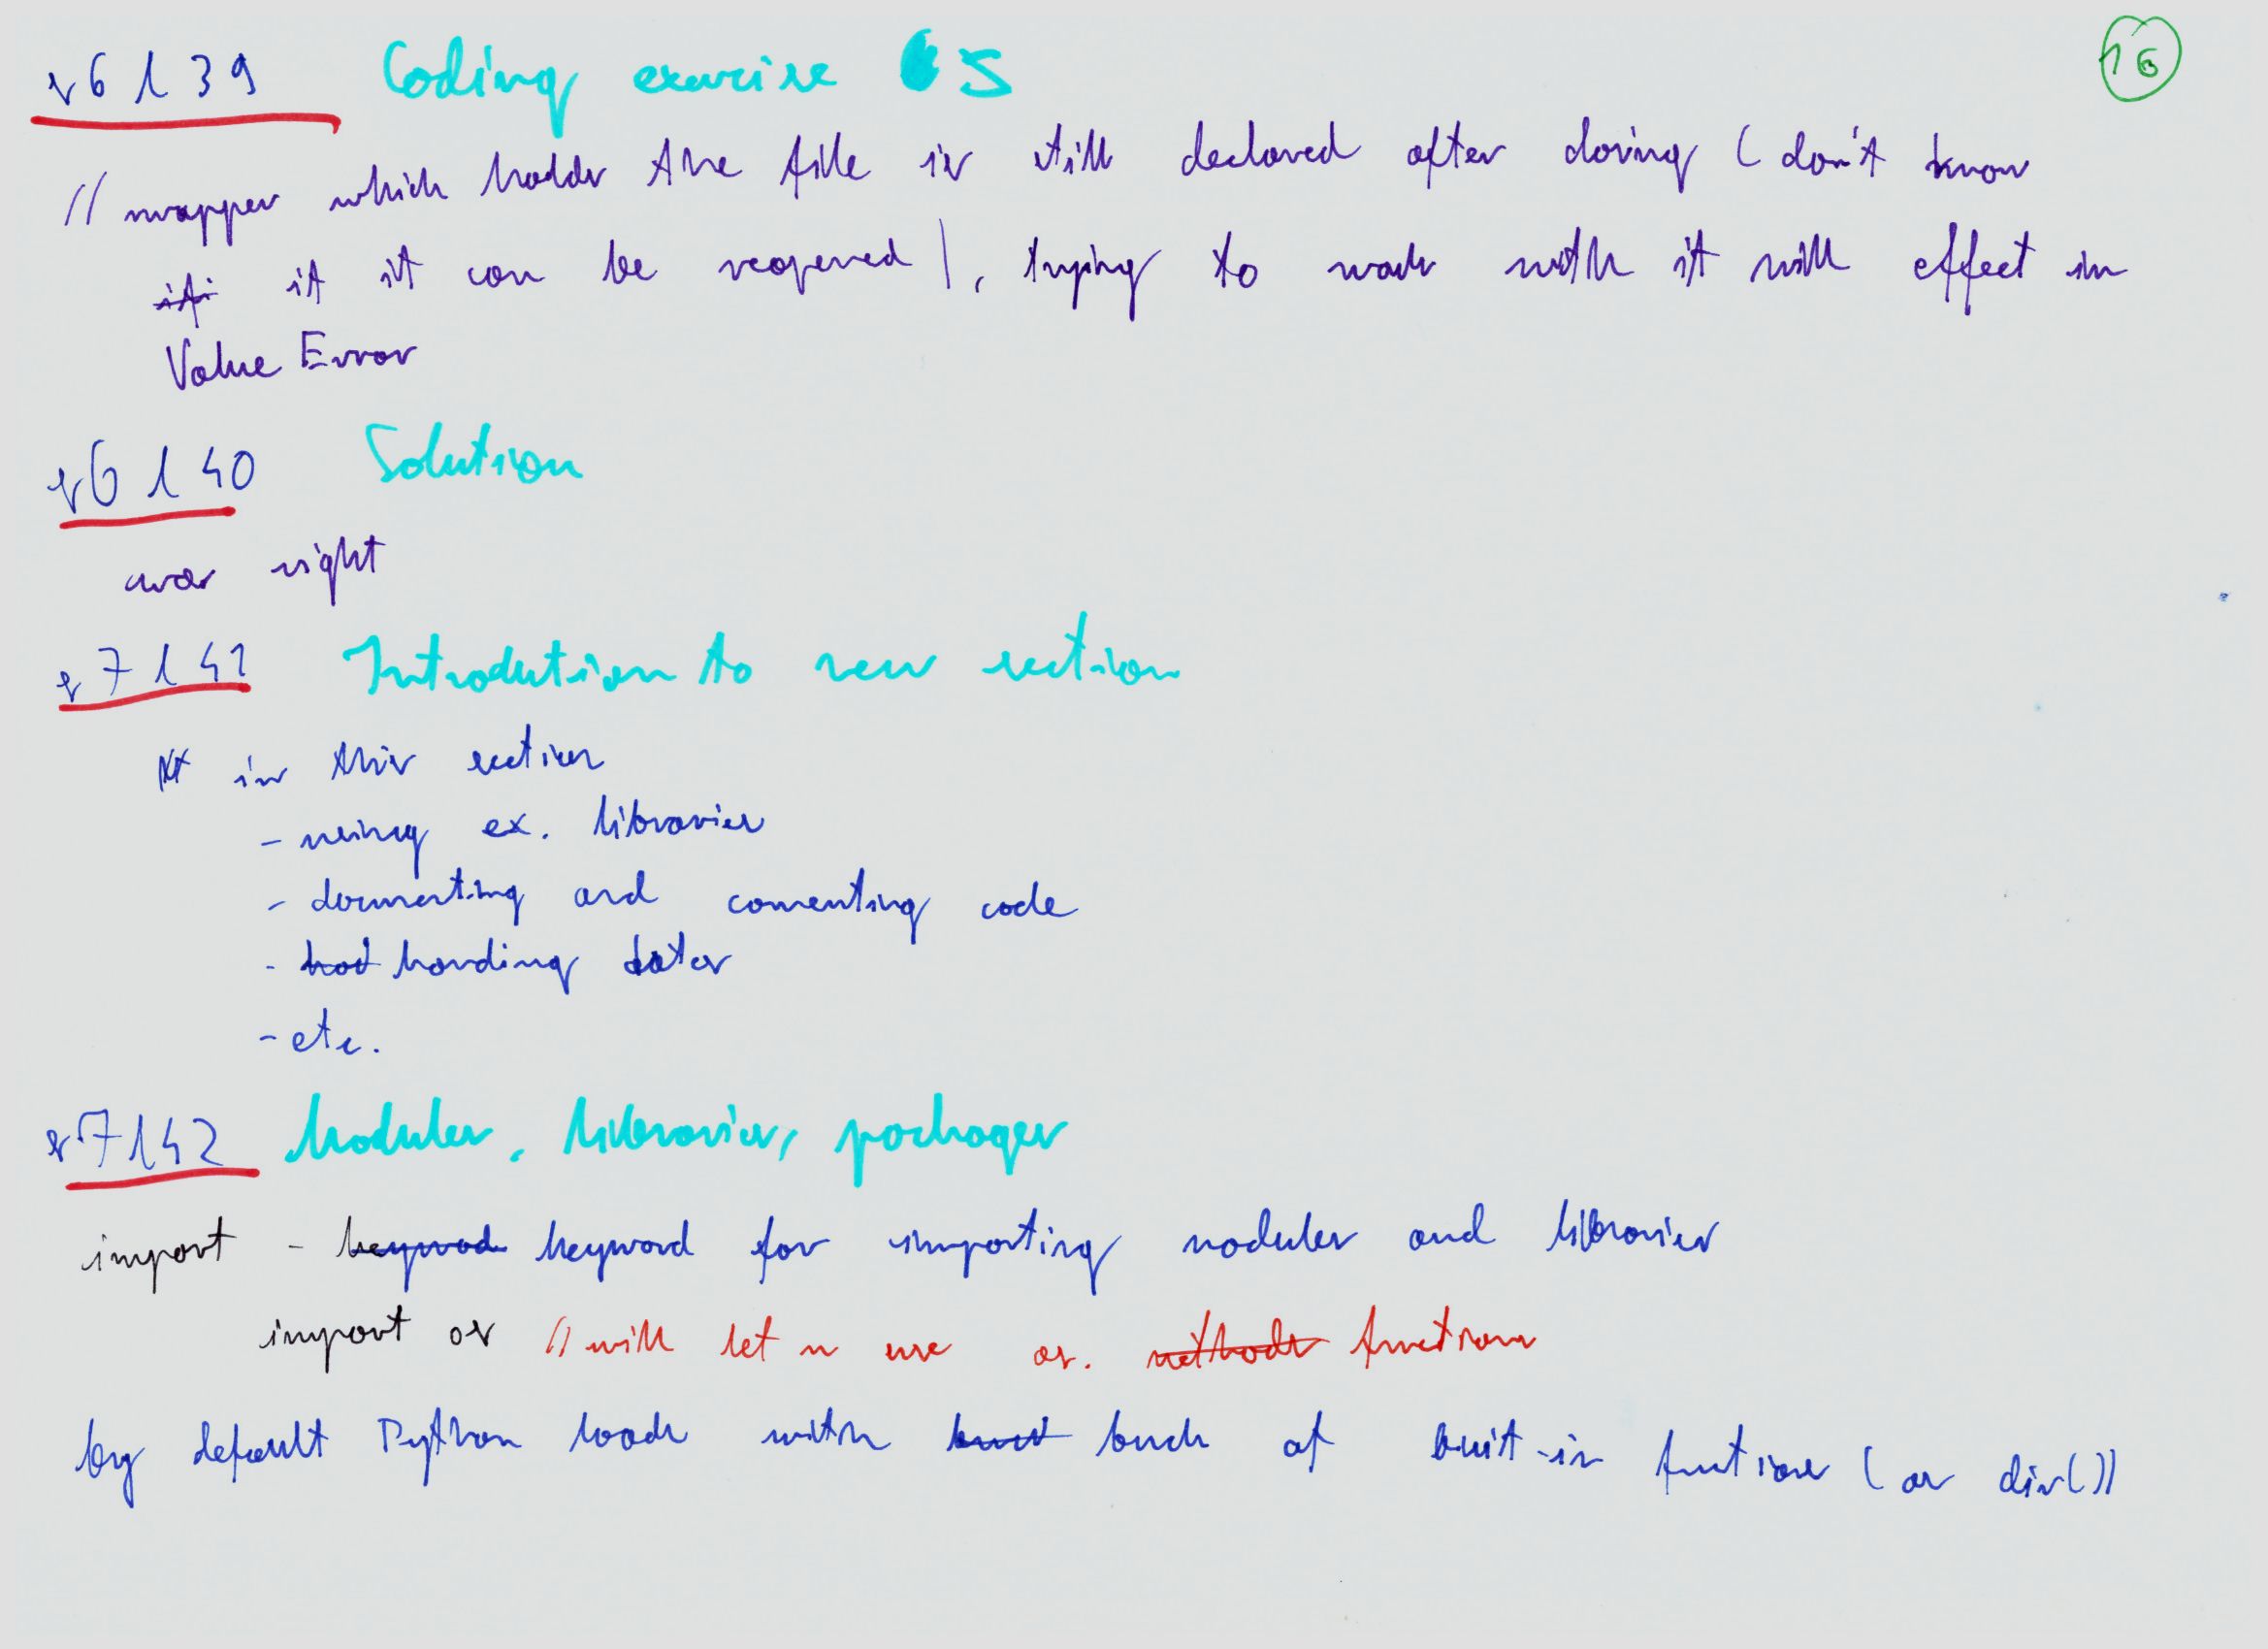 16
s6 l 39 Coding exercise 65
// wrapper which holds the file is still declared after closing (don't know
if it can be reopened), trying to work with it will effect in
Value Error
s6 l 40 Solution
was right
s7 l 41 Introdution to new section
** in this section
- using ex. libraries
- documenting and comenting code
- handing dates
- etc.
s7 l 42 Modules, libraries, packages
import - keyword for importing modules and libraries
import os // will let u use os. methods functions
by default Python loads with buch of buit-in functions (as dir())